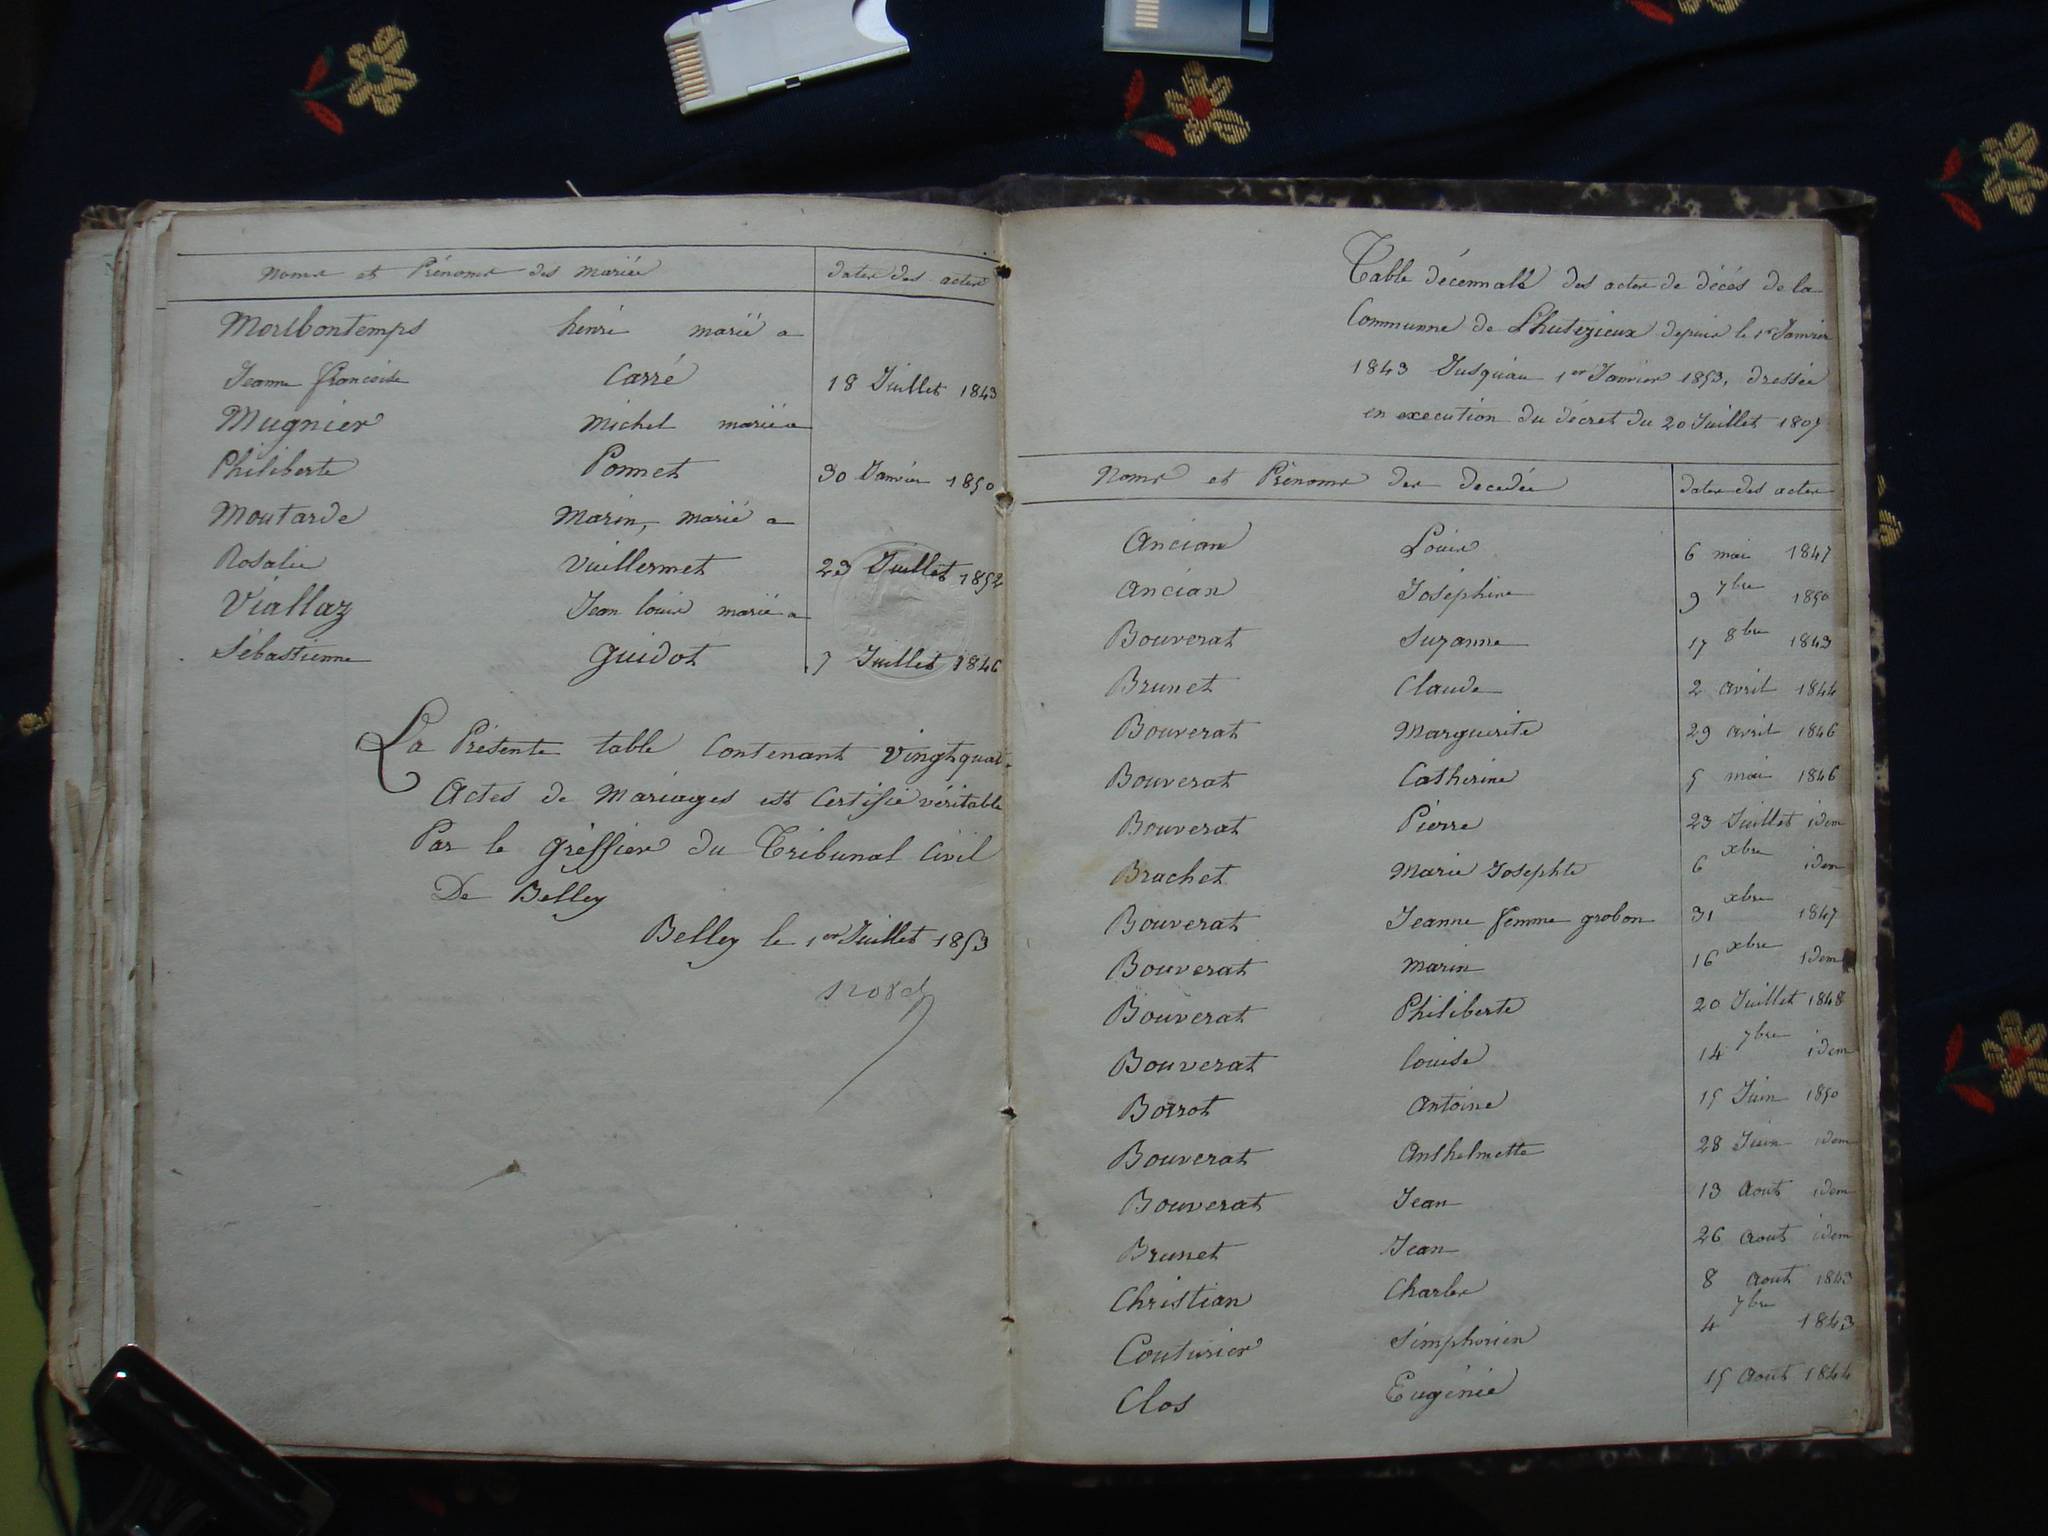 Noms et Prénoms des mariés dates des actes
Morelbontemps henri marié a
Jeanne françoise Carré 18 Juillet 1843
Mugnier Michel marié a
Philiberte Ponnet 30 Janvier 1850
Moutarde Marin, marié a
Rosalie Vuillermet 23 Juillet 1852
Viallaz Jean louis marié a
Sébastienne Guidot 7 Juillet 1846
La Présente table Contenant vingtquat
Actes de Mariages est Certifié véritable
Par le Gréffier du Tribunal Civil
De Belley
Belley le 1er Juillet 1853
Table décennale des actes de décés de la
Commune de Lhutezieux depuis le 1er Janvier
1843 Jusqu'au 1er Janvier 1853, dressée
en execution du décret du 20 Juillet 1807
Noms et Prénoms des decedés dates des actes
Ancian Louis 6 mai 1847
Ancian Joséphine 9 7bre 1850
Bouverat Suzanne 17 8bre 1843
Brunet Claude 2 avril 1844
Bouverat Marguerite 29 avril 1846
Bouverat Catherine 5 mai 1846
Bouverat Pierre 23 Juillet idem
Brachet Marie Josephte 6 xbre idem
Bouverat Jeanne femme grobon 31 xbre 1847
Bouverat Marin 16 xbre idem
Bouverat Philiberte 20 Juillet 1848
Bouverat louise 14 7bre idem
Borrot Antoine 15 Juin 1850
Bouverat Anthelmette 28 Juin idem
Bouverat Jean 13 Aout idem
Brunet Jean 26 Aout idem
Christian Charles 8 Aout 1843
Couturier Simphorien 4 7bre 1843
Clos Eugénie 15 Aout 1844